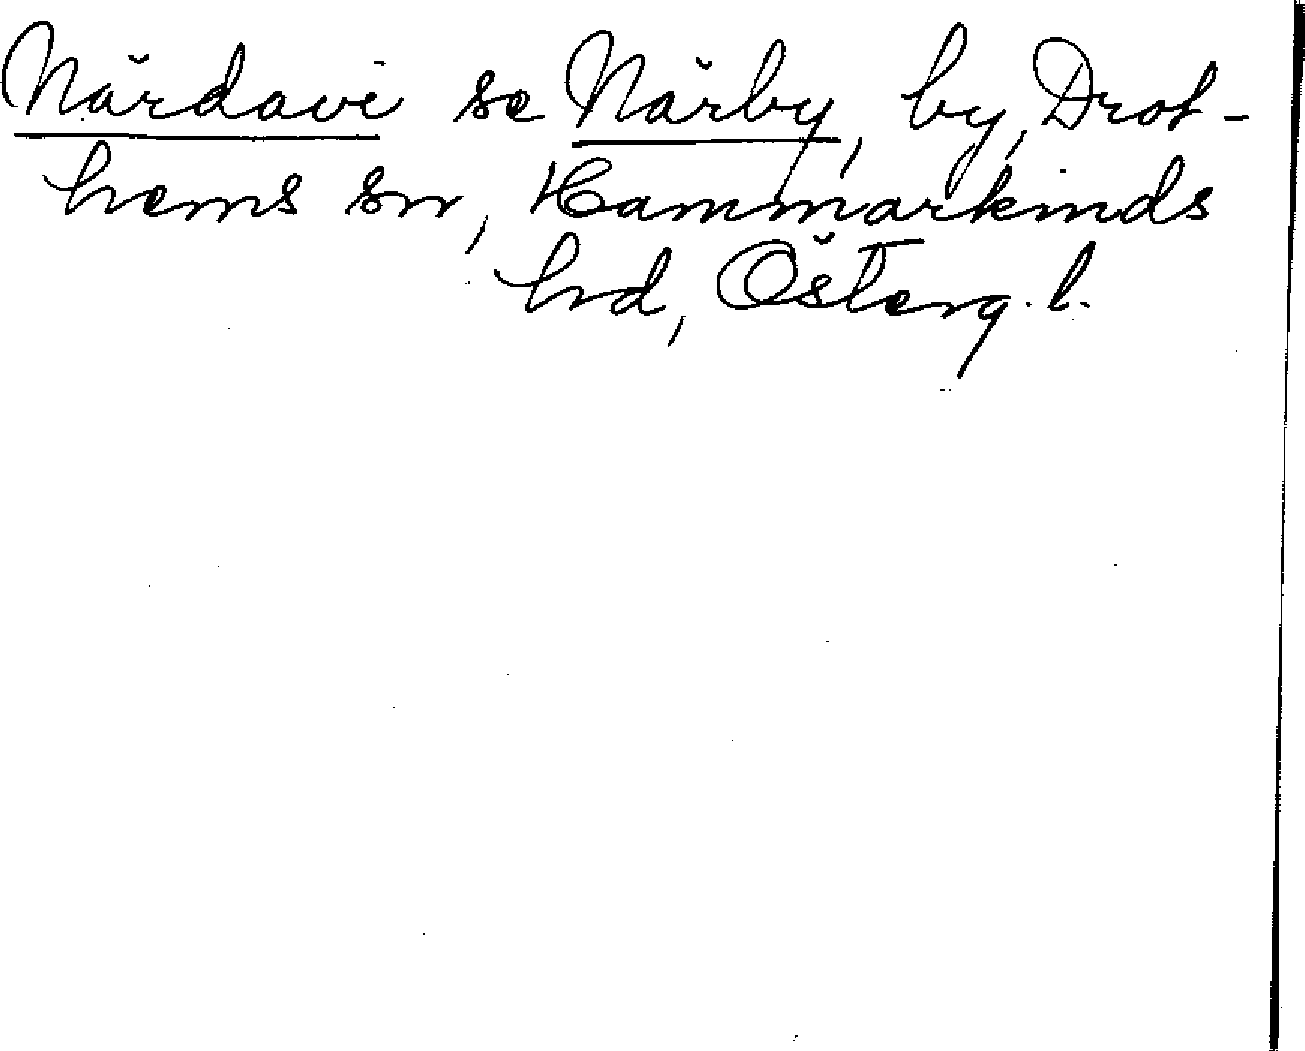 Närdavi se Närby, by, Drot-
hems sn, Hammarkinds
hd, Österg. l.